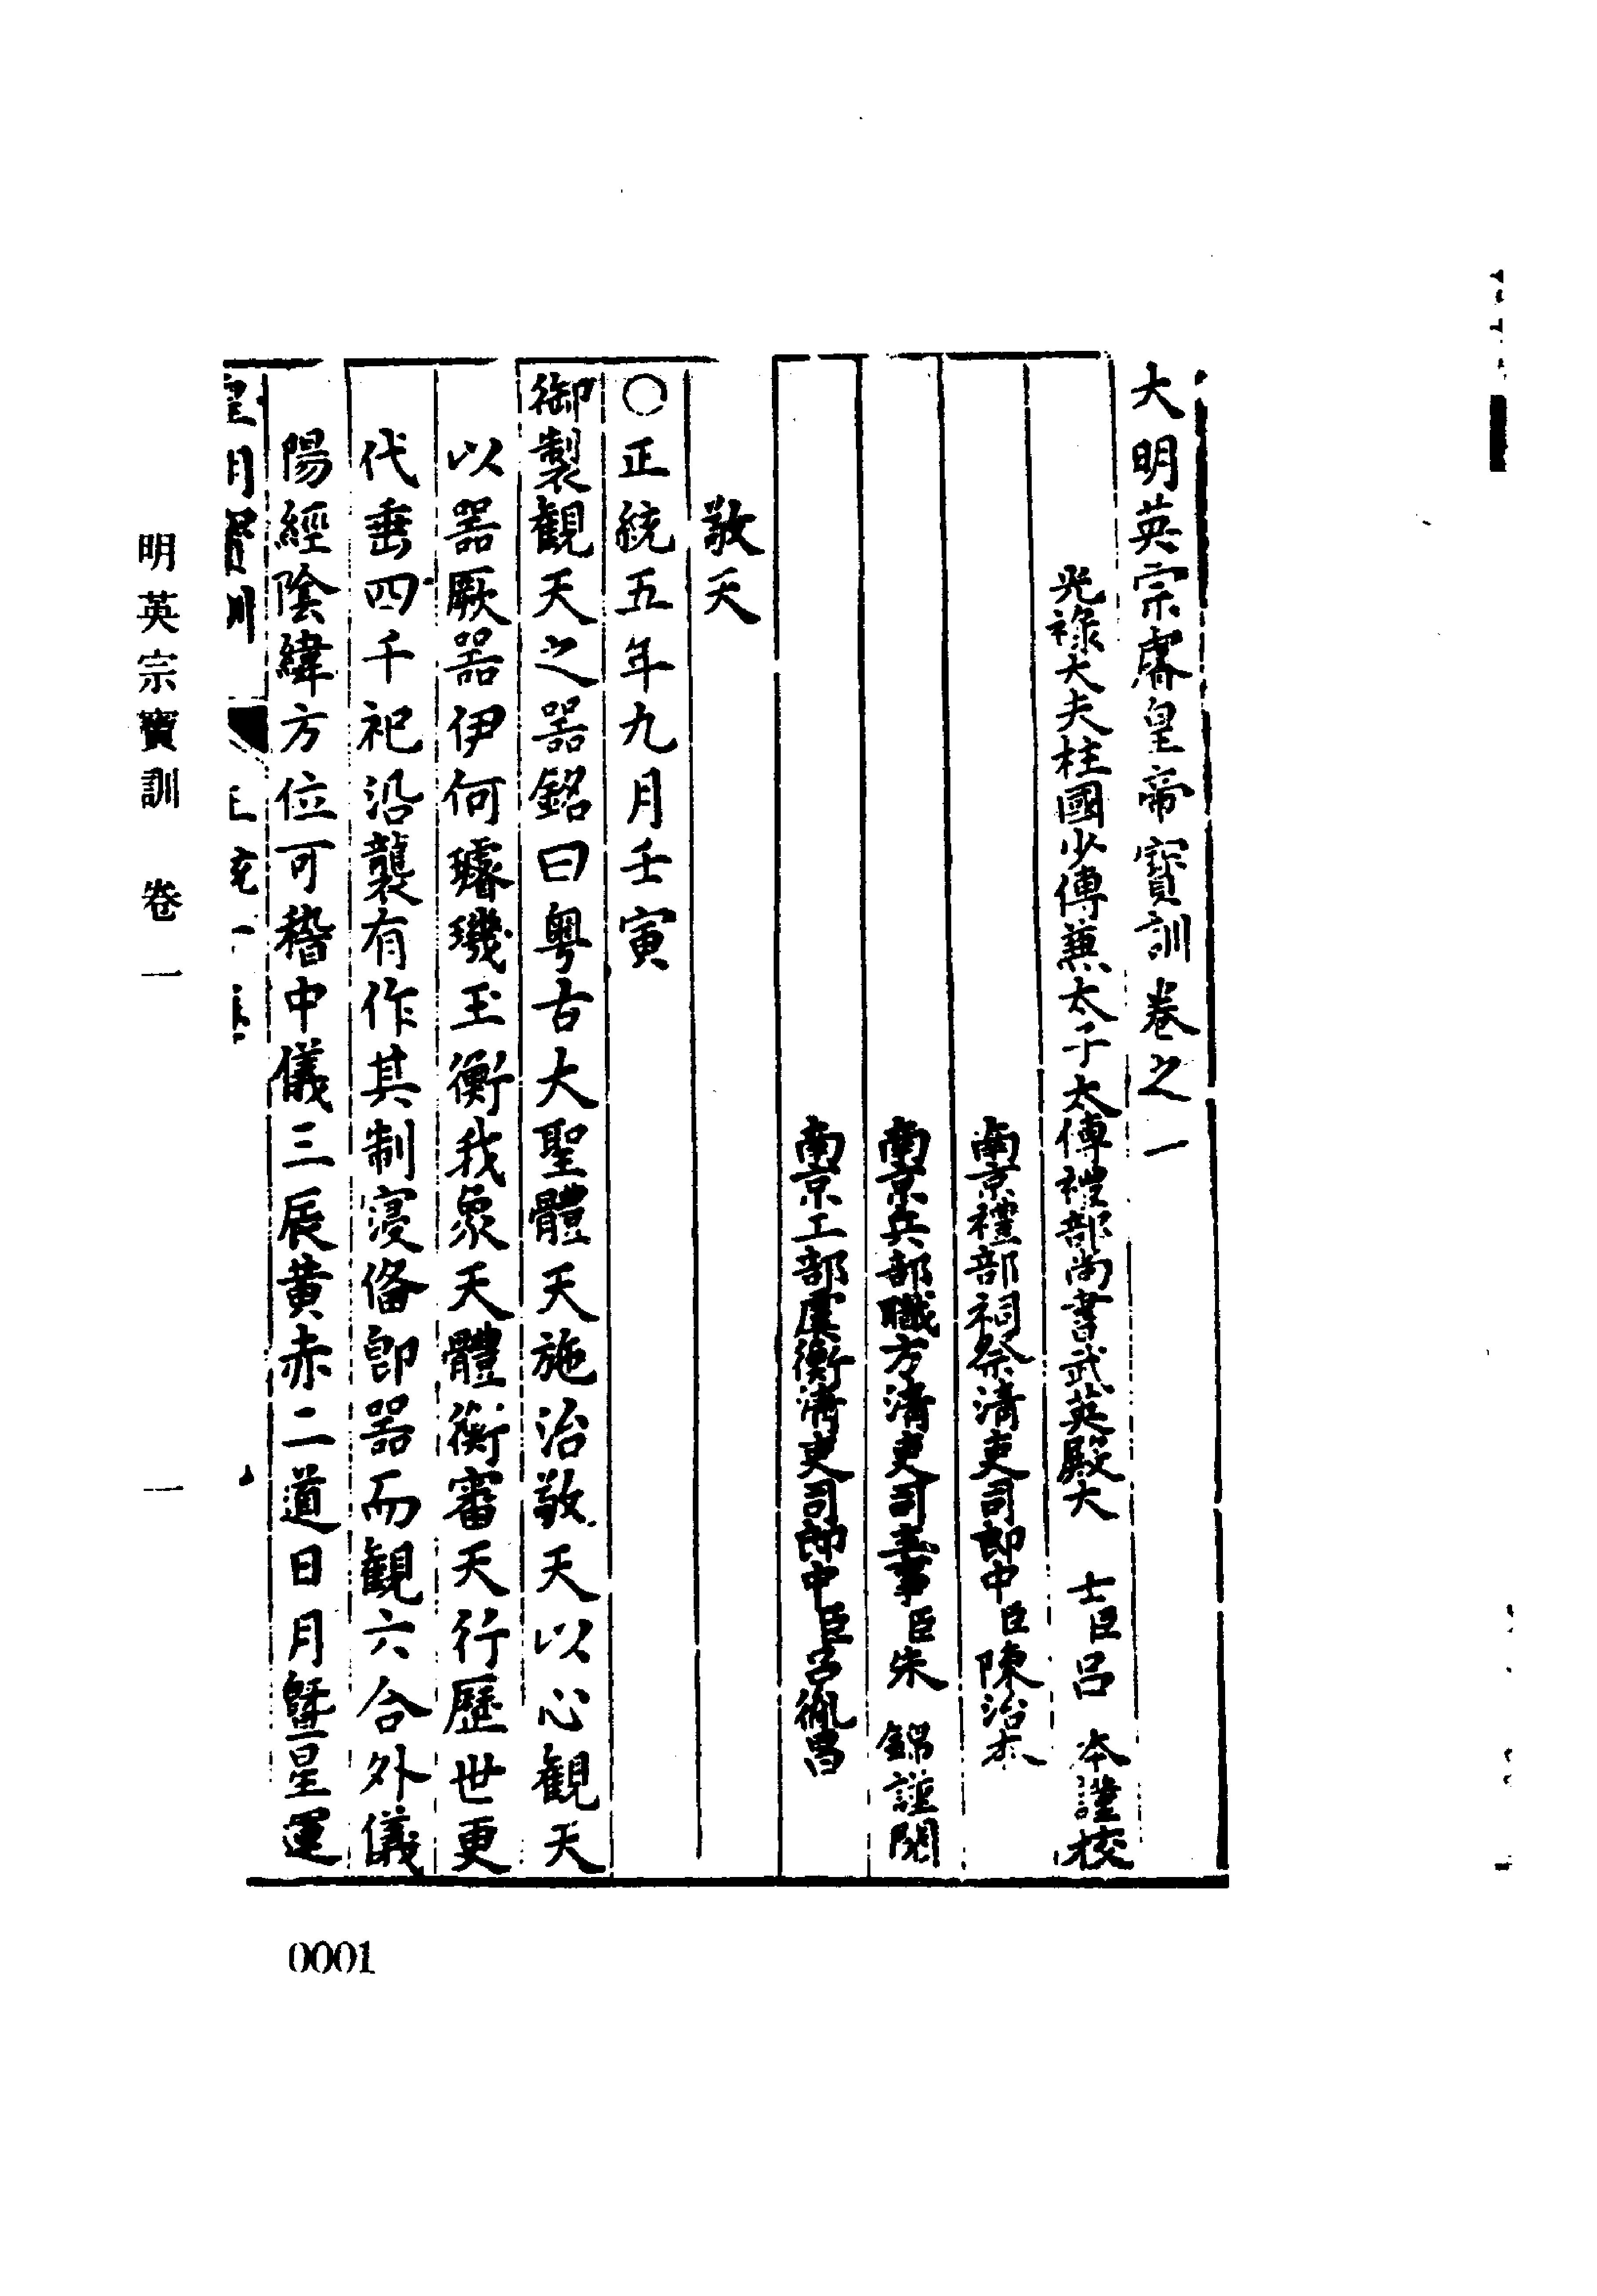 大明英宗睿皇帝寶訓卷之一
光祿大夫柱國少傅兼太子太傅禮部尚書武英殿大 士臣呂 本謹校
南京禮部祠祭清吏司郎中臣陳治本
南京兵部職方清吏司主事臣朱 錦謹閱
南京工部虞衡清吏司郎中臣呂胤昌
敬天
○正統五年九月壬寅
御製觀天之器銘曰粵古大聖體天施治敬天以心觀天
以器厥器伊何璿璣玉衡我象天體衡審天行歷世更
代垂四千祀沿襲有作其制寖俻即器而觀六合外儀
陽經陰緯方位可稽中儀三辰黃赤二道日月曁星運
明英宗寶訓 卷一 一
0001